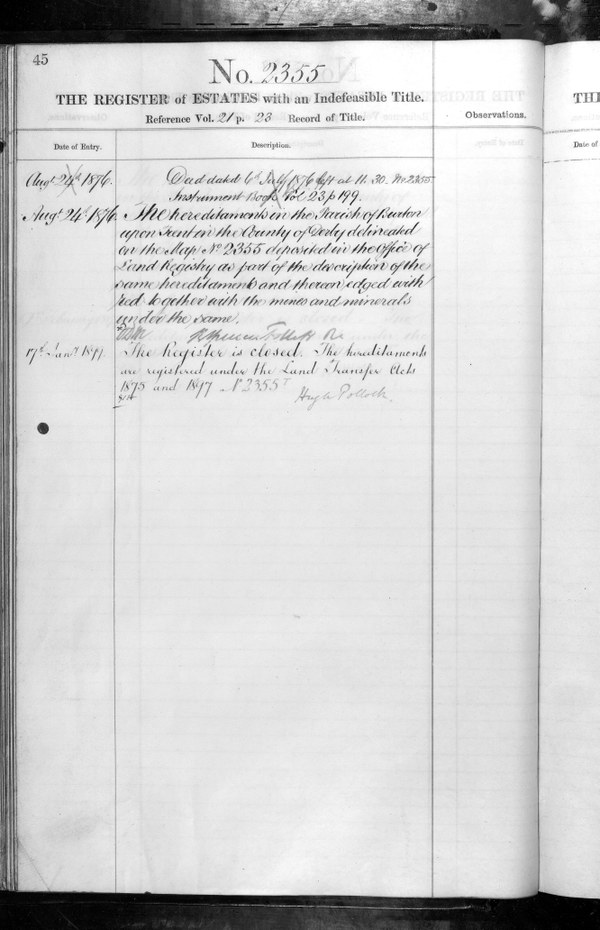 45
No. 2355
THE REGISTER of ESTATES with an Indefeasible Title.
Reference Vol. 21 p. 23 Record of Title.
Observations.
Date of Entry.
Description.
Augt 24th 1876.
Deed dated 6th July 1876 left at 11.30. No 2355
Instrument Book Vol 23 p 199.
Augt 24th 1876.
The hereditaments in the Parish of Burton
upon Trent in the County of Derby delineated
on the Map No 2355 deposited in the Office of
Land Registry as part of the description of the
same hereditaments and thereon edged with
red together with the mines and minerals
under the same.
17th Jany 1899
The Register is closed. The hereditaments
are registered under the Land Transfer Acts
1875 and 1897 No 2355
Hugh Pollock.
THE
Date of